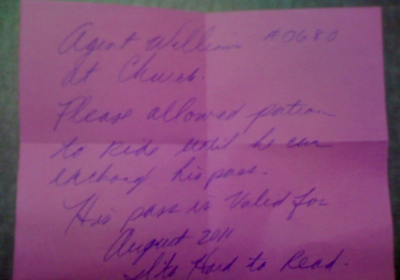 Agent William #0680
at Church.
Please allowed patron
to ride until he can
exchang his pass.
His pass is Valid for
August 2011
Its Hard to Read.